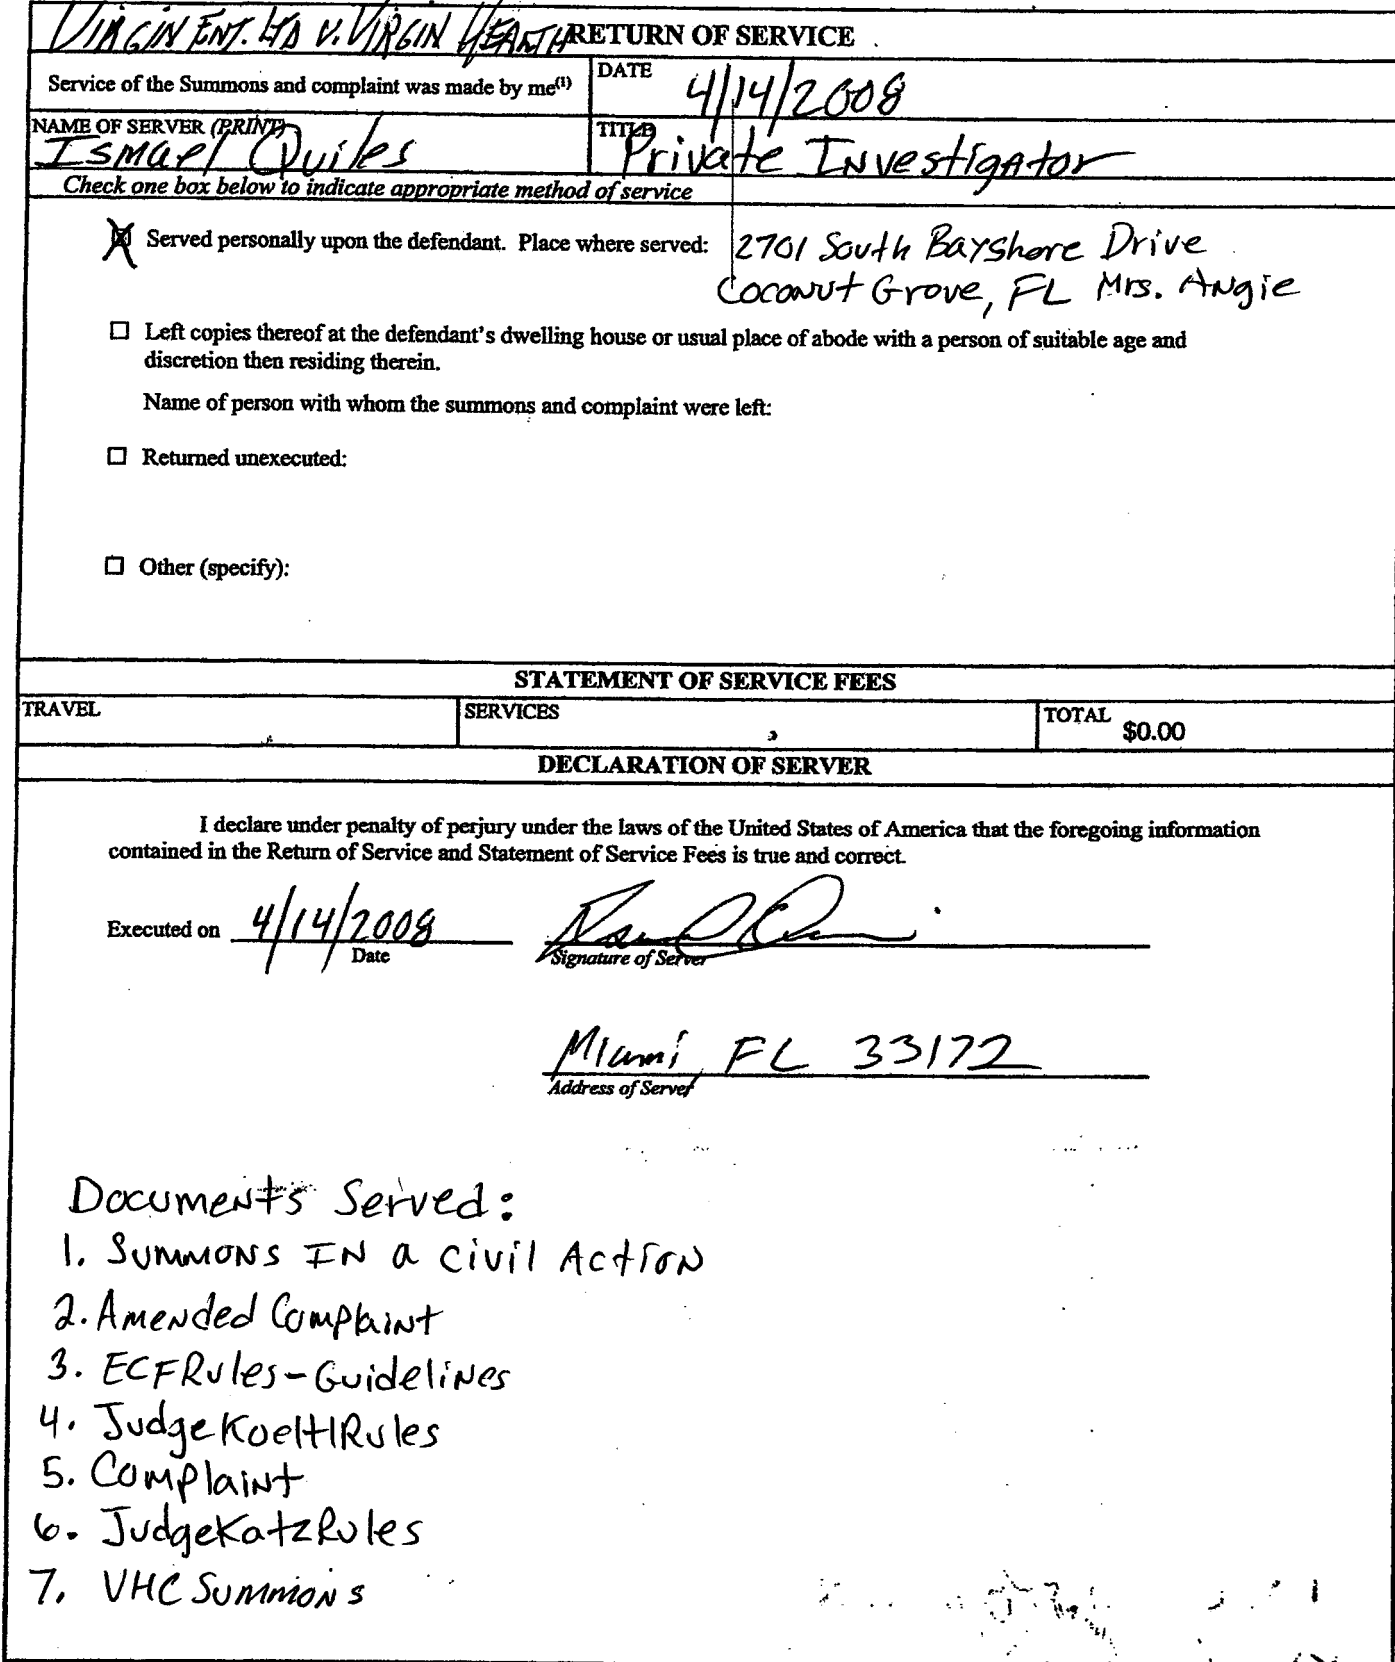 VIRGIN ENT. LTD V. VIRGIN HEALTH RETURN OF SERVICE
Service of the Summons and complaint was made by me(1)
DATE 4/14/2008
NAME OF SERVER (PRINT)
Ismael Quiles
TITLE
Private Investigator
Check one box below to indicate appropriate method of service
Served personally upon the defendant. Place where served: 2701 South Bayshore Drive
Coconut Grove, FL Mrs. Angie
Left copies thereof at the defendant's dwelling house or usual place of abode with a person of suitable age and
discretion then residing therein.
Name of person with whom the summons and complaint were left:
Returned unexecuted:
Other (specify):
STATEMENT OF SERVICE FEES
TRAVEL
SERVICES
TOTAL $0.00
DECLARATION OF SERVER
I declare under penalty of perjury under the laws of the United States of America that the foregoing information
contained in the Return of Service and Statement of Service Fees is true and correct.
Executed on 4/14/2008
Date
Signature of Server
Miami, FL 33172
Address of Server
Documents Served:
1. Summons IN a civil Action
2. Amended Complaint
3. ECFRules-Guidelines
4. JudgeKoeltlRules
5. Complaint
6. JudgeKatzRules
7. VHC Summons